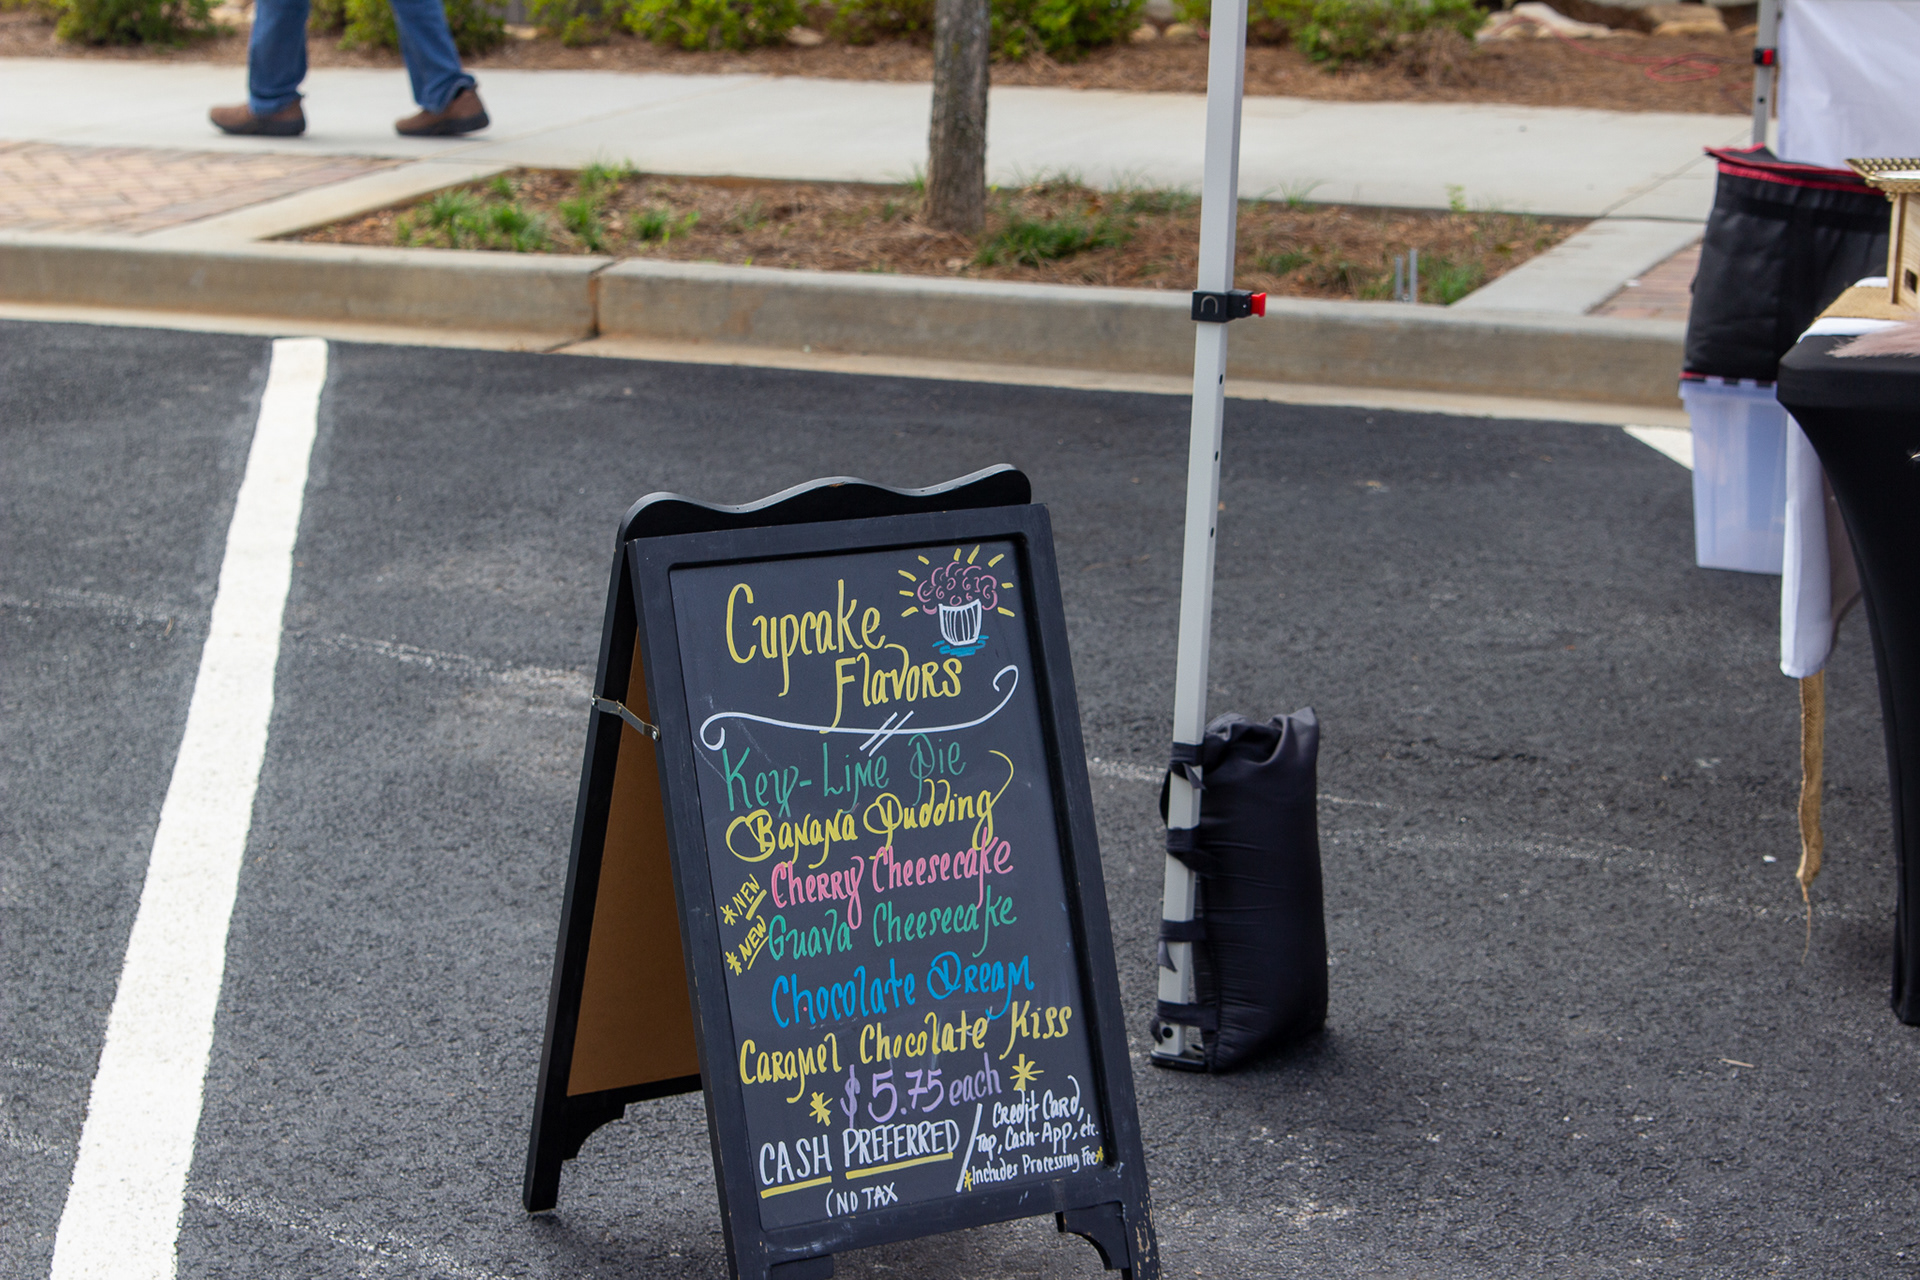 Cupcake
Flavors
Key-Lime Pie
Banana Pudding
*NEW Cherry Cheesecake
*NEW Guava Cheesecake
Chocolate Dream
Caramel Chocolate Kiss
* $5.75 each *
CASH PREFERRED / Credit Card,
Tap, Cash-App, etc.
*Includes Processing Fee*
(NO TAX